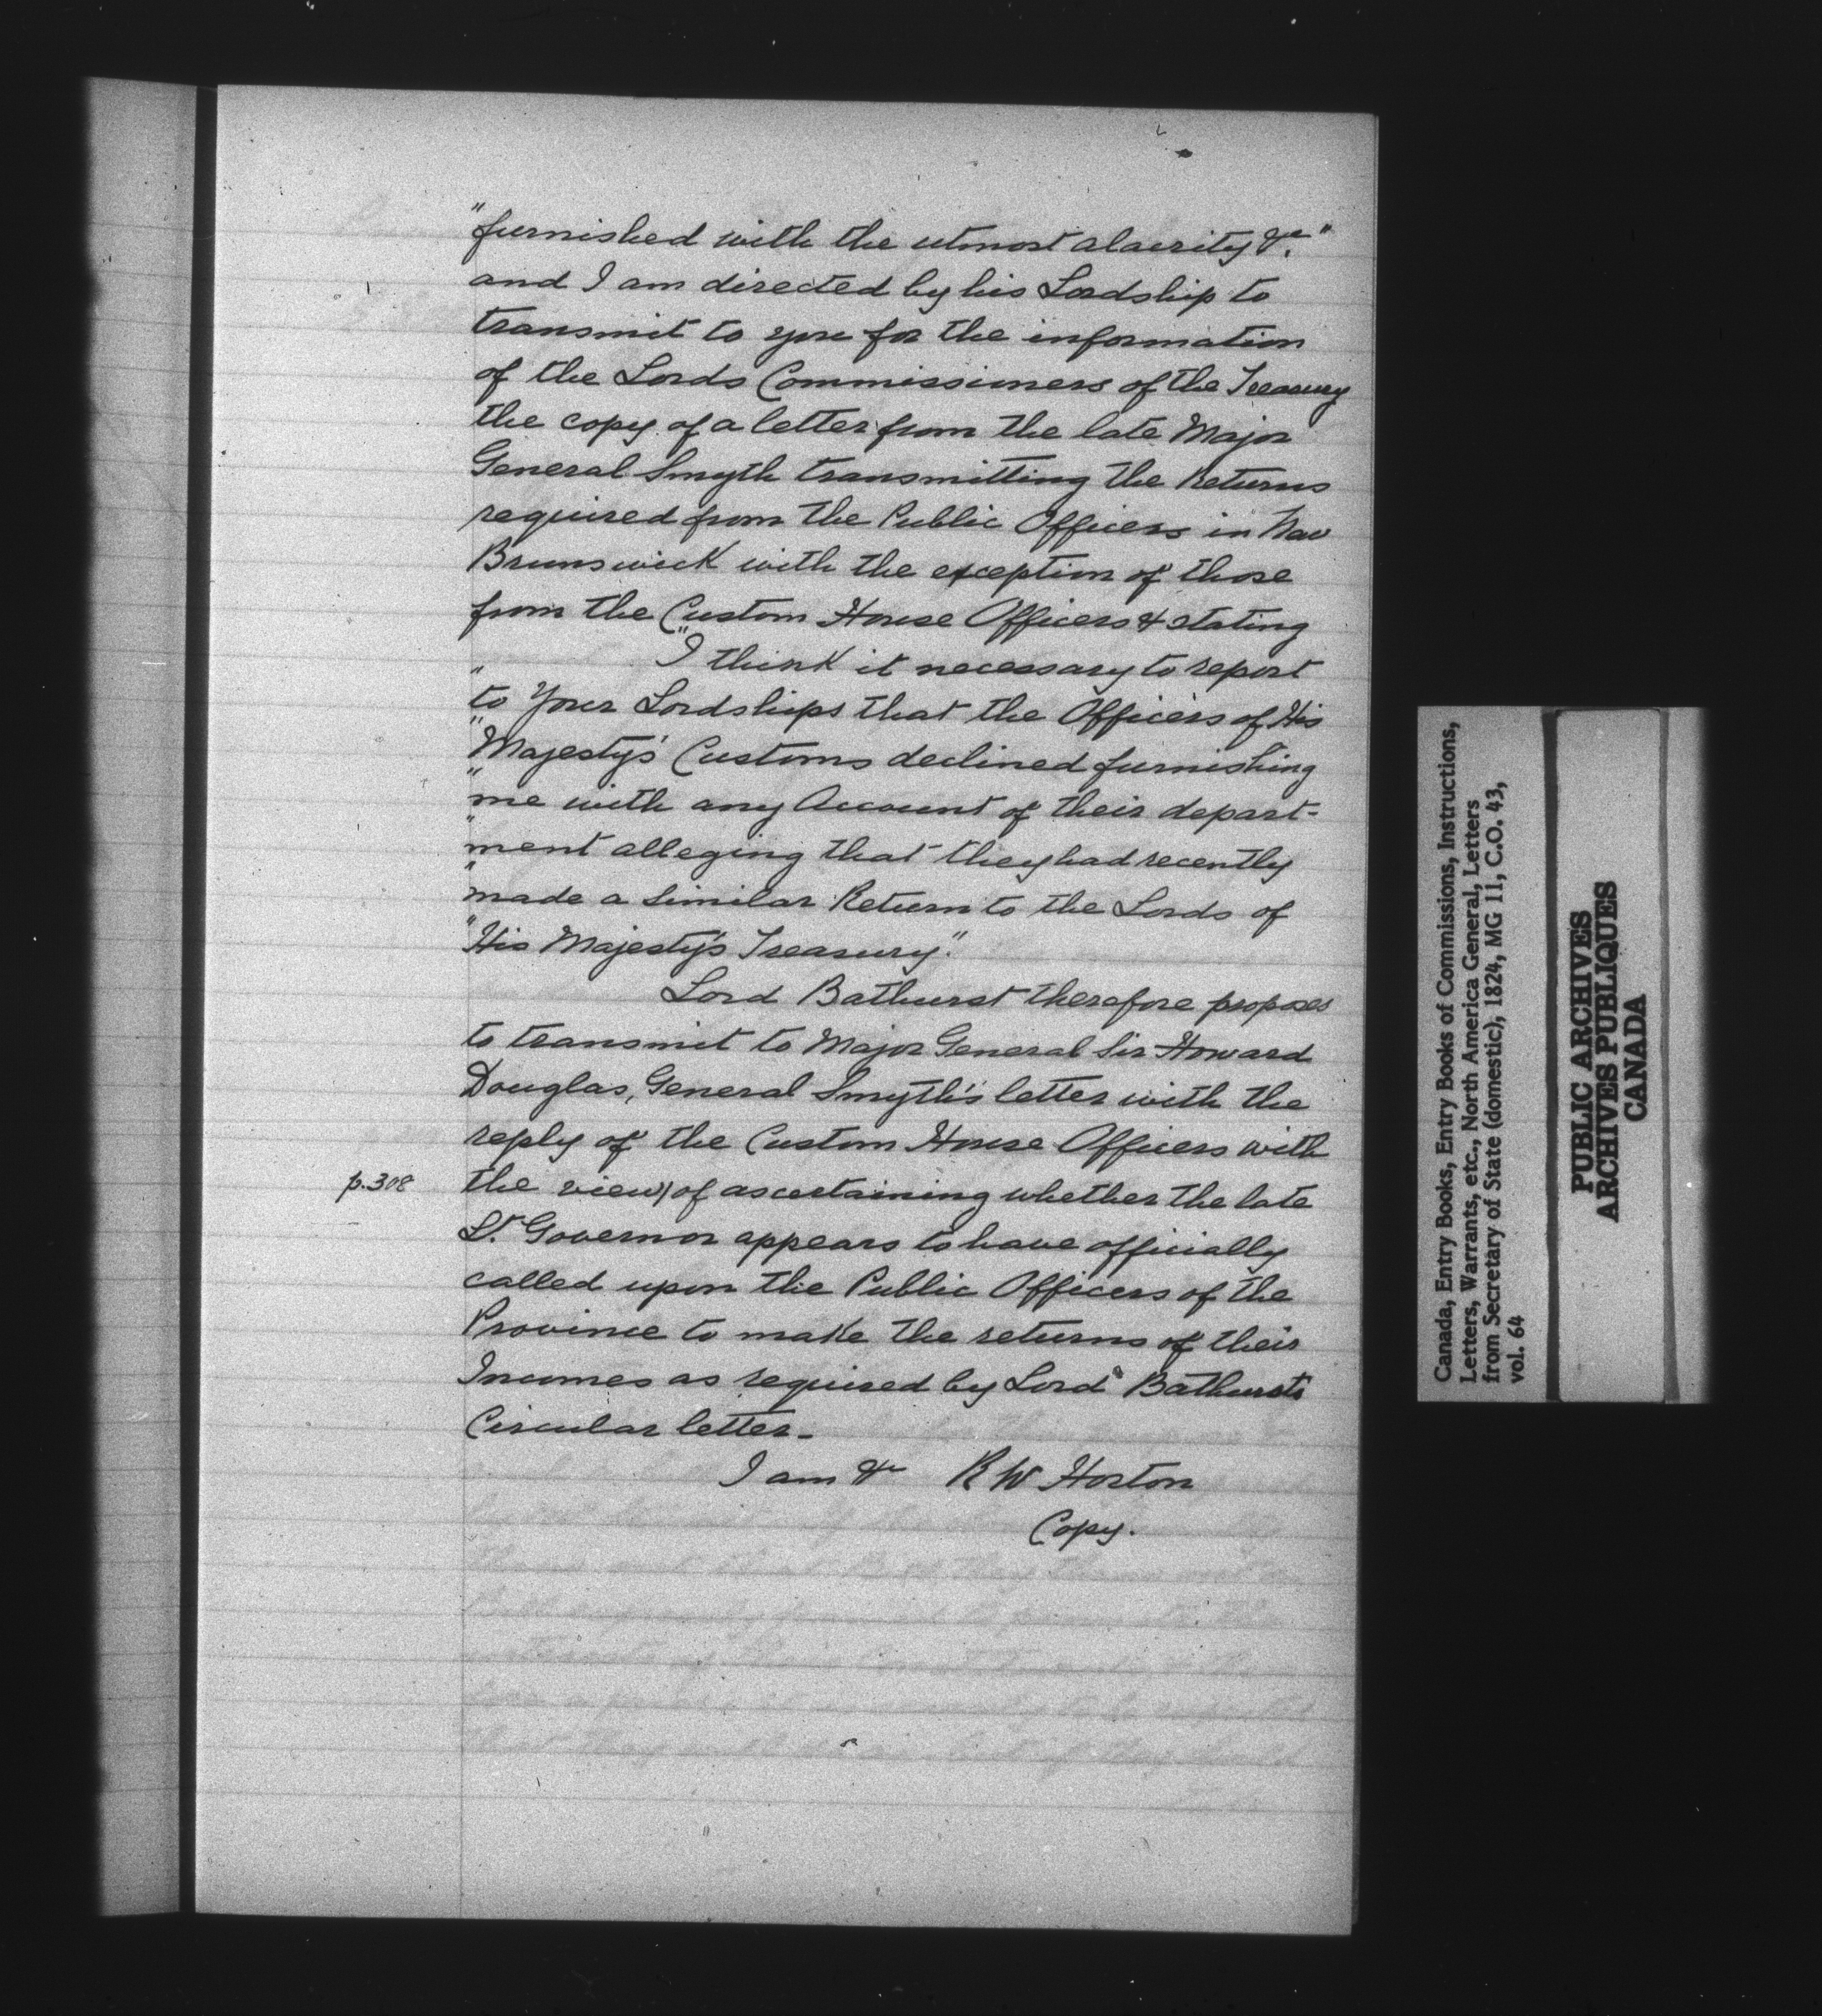 "furnished with the utmost alacrity &c."
and I am directed by his Lordship to
transmit to you for the information
of the Lords Commissioners of the Treasury
the copy of a letter from the late Major
General Smyth transmitting the Returns
required from the Public Officers in New
Brunswick with the exception of those
from the Custom House Officers & stating
"I think it necessary to report
"to Your Lordships that the Officers of His
"Majesty's Customs declined furnishing
"me with any Account of their depart-
"ment alleging that they had recently
"made a similar Return to the Lords of
"His Majesty's Treasury."
Lord Bathurst therefore proposes
to transmit to Major General Sir Howard
Douglas, General Smyth's letter with the
reply of the Custom House Officers with
p.308 the view | of ascertaining whether the late
Lt. Governor appears to have officially
called upon the Public Officers of the
Province to make the returns of their
Incomes as required by Lord Bathursts
Circular letter_
I am &c R W Horton
Copy.
Canada, Entry Books, Entry Books of Commissions, Instructions,
Letters, Warrants, etc., North America General, Letters
from Secretary of State (domestic), 1824, MG 11, C.O. 43,
vol. 64
PUBLIC ARCHIVES
ARCHIVES PUBLIQUES
CANADA